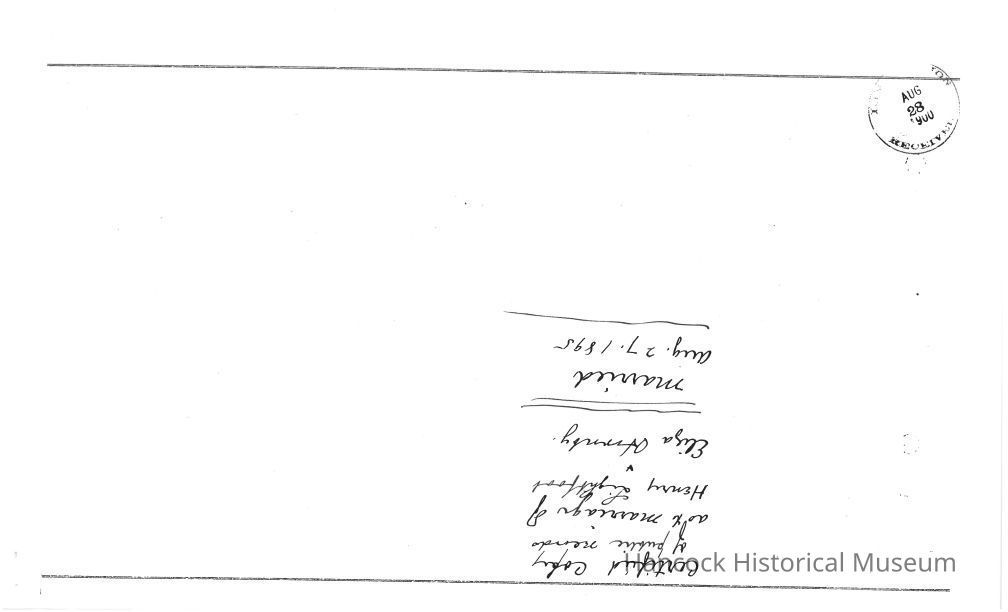 AUG
28
1900
RECEIVED
Certified Copy
of public records
as to marriage of
Henry Lightfoot
&
Eliza Hornsby.
married
Aug. 27. 1895
Hancock Historical Museum